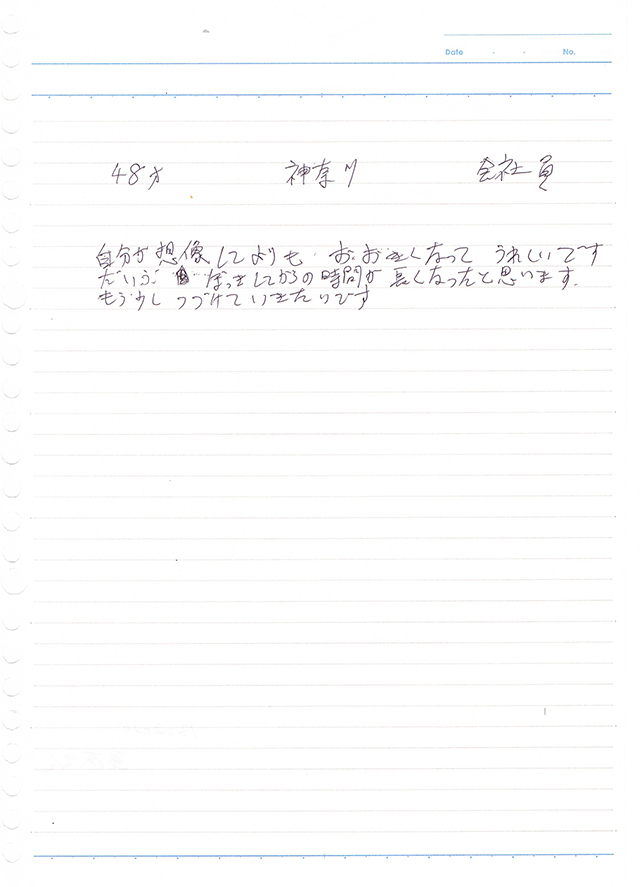 Date ・ ・ No.
48才 神奈川 会社員
自分が想像してよりも おおきくなって うれしいです
だいぶ ぼっきしてからの時間が 長くなったと思います.
もう少し つづけていきたいです